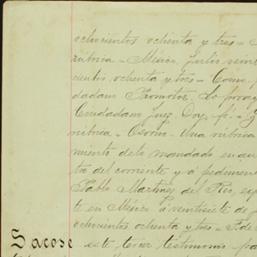 ochocientos ochenta y tres =
rúbrica = México, Julio veint
cientos ochenta y tres = Como
dadano Promotor. Lo prove
Ciudadano Juez. Doy fé =
rúbrica = Osorio = Una rúbrica
miento de lo mandado en au
to del corriente y á pedimento
Pablo Martinez del Rio, esp
te en México á veintisiete de
ochocientos ochenta y tres =
Sacose este tercer testimonio pa